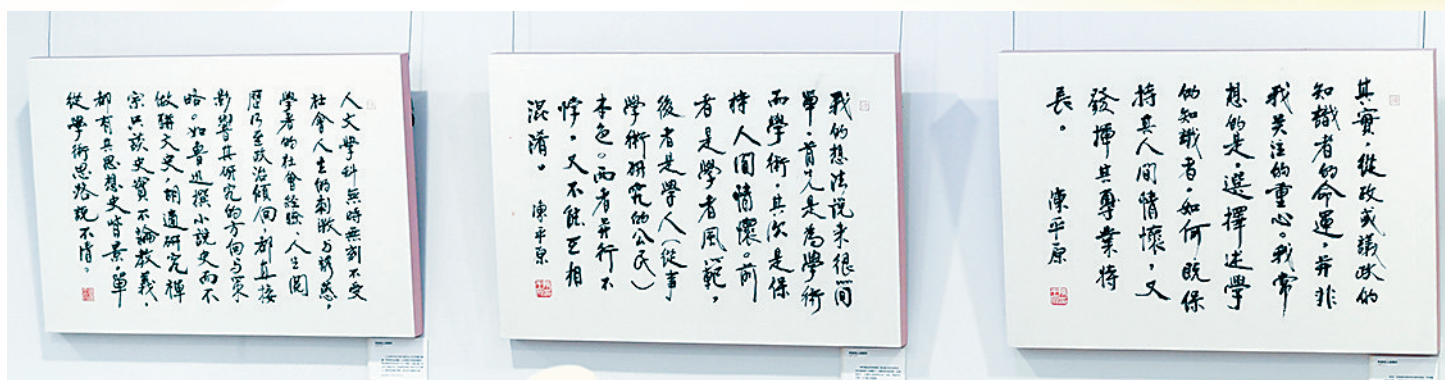 人文學科無時無刻不受
社會人生的刺激与誘惑，
學者的社會經驗、人生閱
歷乃至政治傾向，都直接
影響其研究的方向与策
略。如魯迅撰小說史而不
做駢文史，胡適研究禪
宗只談史實不論教義
都有其思想史背景，單
從學術思路說不清。
我的想法説来很簡
單，首先是為學術
而學術，其次是保
持人間情懷。前
者是學者風範，
後者是學人（從事
學術研究的公民）
本色。兩者并行不
悖，又不能互相
混淆。 陳平原
其實，從政或議政的
知識者的命運，并非
我关注的重心。我常
想的是，選擇述學
的知識者，如何既保
持其人間情懷，又
發揮其專業特
長。 陳平原